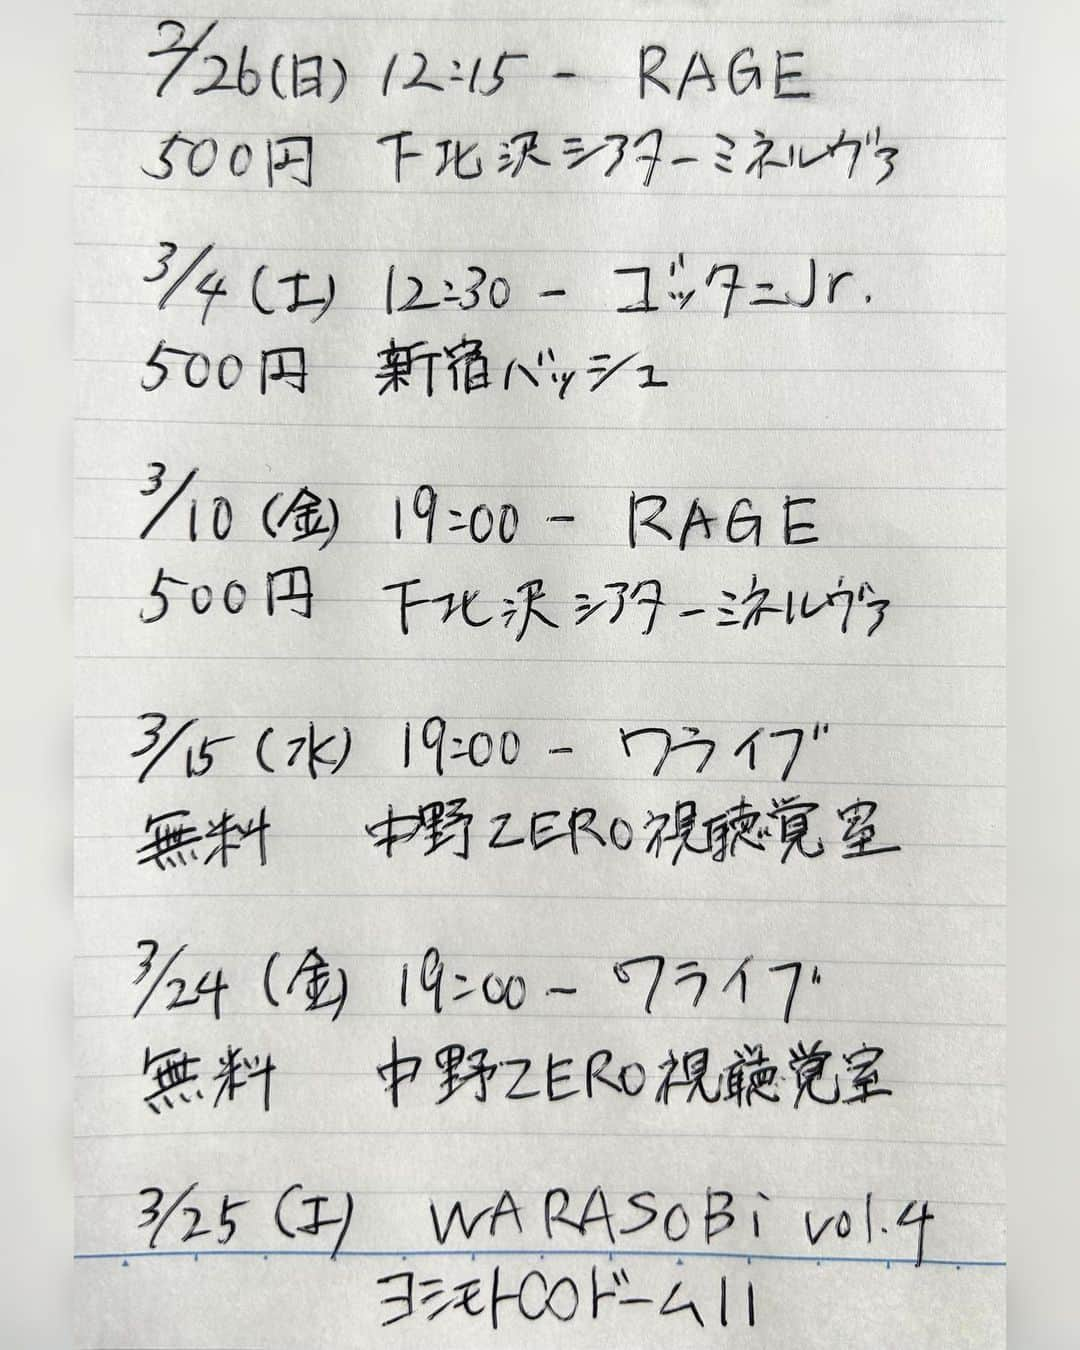 2/26(日) 12:15 - RAGE
500円 下北沢シアターミネルヴァ
3/4(土) 12:30 - ゴッタニJr.
500円 新宿バッシュ
3/10(金) 19:00 - RAGE
500円 下北沢シアターミネルヴァ
3/15(水) 19:00 - ワライブ
無料 中野ZERO視聴覚室
3/24(金) 19:00 - ワライブ
無料 中野ZERO視聴覚室
3/25(土) WARASOBi vol.4
ヨシモト∞ドームII